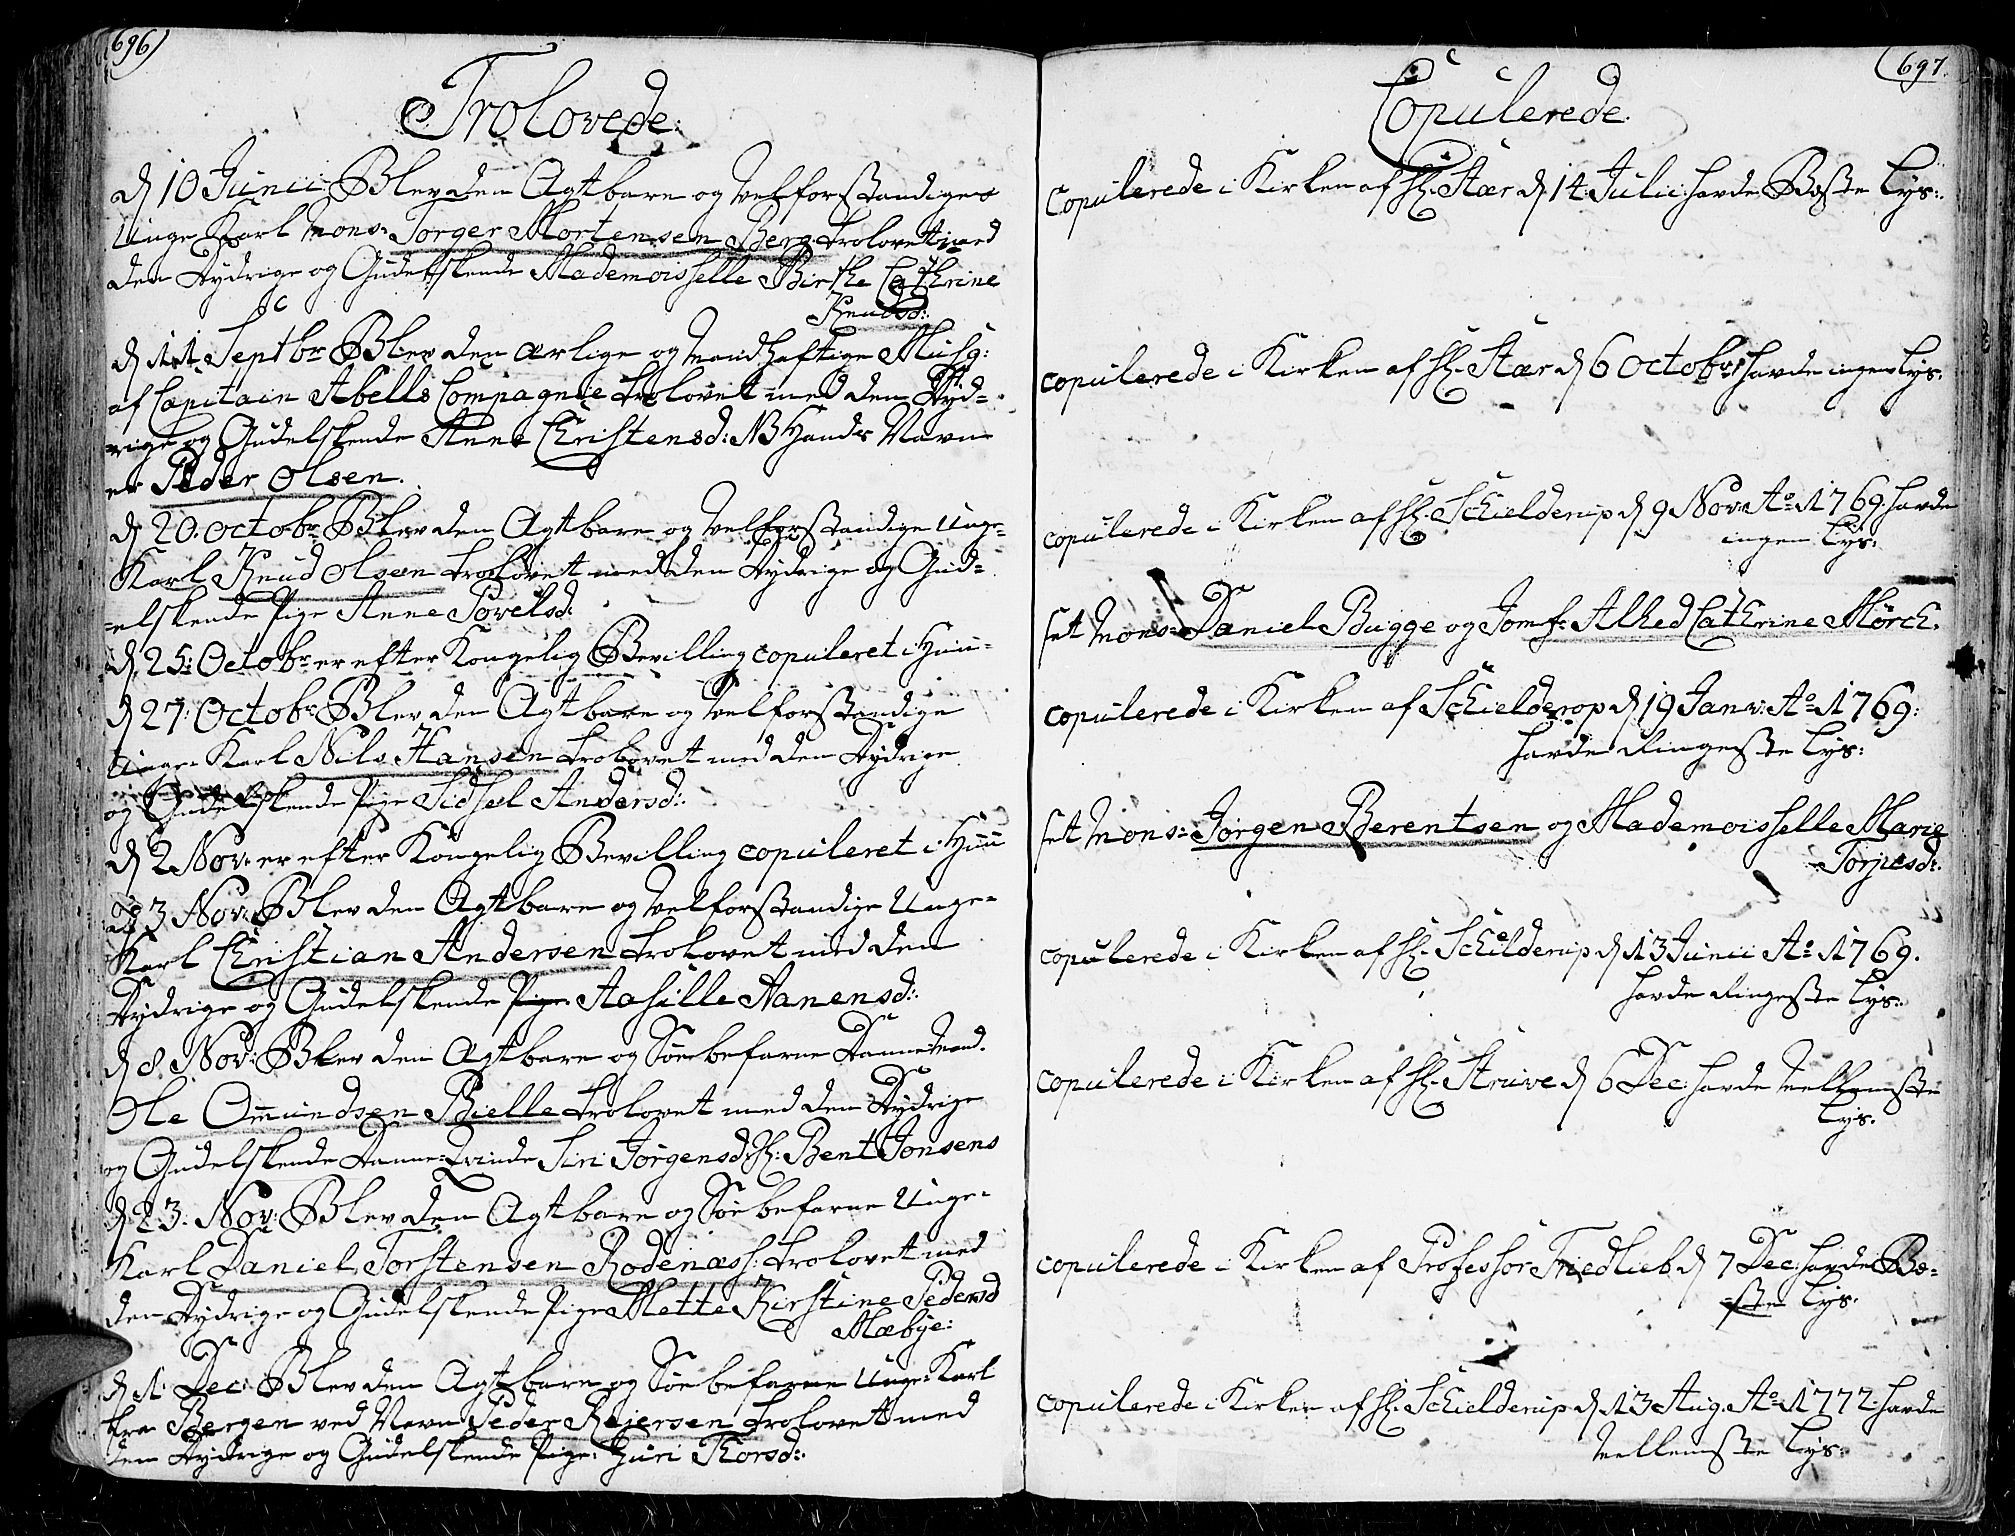 696)
Trolovede.
d 10 Junii Blev den Agtbare og velforstandige
Unge Karl Mons: Torger Mortensen Berg trolovet med
den Dydrige og Gudelskende Mademoisselle Birthe Cathrine
Knudsd:
d 11 Septbr Blev den ærlige og Mandhaftige Musq:
af Capitain Abells Compagnie trolovet med den Dyd-
rige og Gudelskende Anne Christensd: NB Hands Navn
er Peder Olsen.
d 20. Octobr Blev den Agtbare og Velforstandige Unge-
Karl Knud Olsen trolovet med den Dydrige og Gud-
elskende Pige Anne Povelsd:
d. 25: Octobr er efter Kongelig Bevilling copuleret i Huu-
d 27: Octobr Blev den Agtbare og Velforstandige
Unge Karl Nils Hansen trolovet med den Dydrige
og Gudelskende Pige Sidsel Andersd:
d 2 Nov: er efter Kongelig Bevilling copuleret i Huu
d 3 Nov: Blev den Agtbare og Velforstandige Unge-
Karl Christian Andersen trolovet med den
Dydrige og Gudelskende Pige Aasille Aanensd:
d 8. Nov: Blev den Agtbare og Søebefarne Danne Mand.
Ole Omundsen Bielle trolovet med den Dydrige
og Gudelskende Danne-Qvinde Siri Jørgensd: Sl: Bent Jonsens
d 23. Nov: Blev den Agtbare og Søe befarne Unge-
Karl Daniel Torstensen Rodenæss: trolovet med
den Dydrige og Gudelskende Pige Mette Kirstine Pedersd
Mæbye:
d 1. Dec: Blev den Agtbare og Søe befarne Unge Karl
fra Bergen ved Navn Peder Rejersen trolovet med
den Dydrige og Gudelskende Pige: Guri Thorsd:
(697.
Copulerede.
copulerede i Kirken af H: Stær d 14 Julii havde Beste Lys:
copulerede i Kirken af H: Stær d 6 Octobr: havde ingen Lys.
copulerede i Kirken af H: Schielderup d 9 Nov: Ao 1769: havde
ingen Lys:
set Mons: Daniel Bugge og Jomf: Alhed Cathrine Mørch.
copulerede i Kirken af Schielderop d 19 Janv: Ao 1769:
havde Ringeste Lys:
set Mons: Jørgen Berentsen og Mademoisselle Marie
Torjusd:
copulerede i Kirken af H: Schielderup d 13 Junii Ao 1769.
havde Ringeste Lys:
copulerede i Kirken af H: Struve d 6 Dec: havde Mellemste
Lys.
copulerede i Kirken af Professor Friedlieb d 7 Dec: havde Be-
ste Lys.
copulerede i Kirken af H: Schielderup d 13 Aug. Ao 1772: havde
Mellemste Lys: